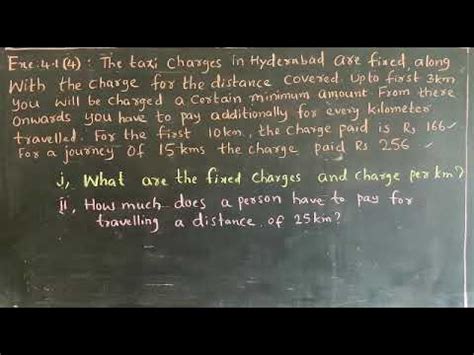 Exe:4.1(4): The taxi charges in Hyderabad are fixed, along
With the charge for the distance covered. Upto first 3km
you will be charged a certain minimum amount. From there
onwards you have to pay additionally for every kilometer
travelled. For the first 10km, the charge paid is Rs 166
For a journey of 15 kms the charge paid Rs 256
i, What are the fixed charges and charge per km?
ii, How much does a person have to pay for
travelling a distance of 25km?